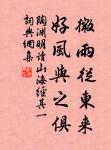 微雨從東來
好風與之俱
陶淵明讀山海經其一
詞典網集